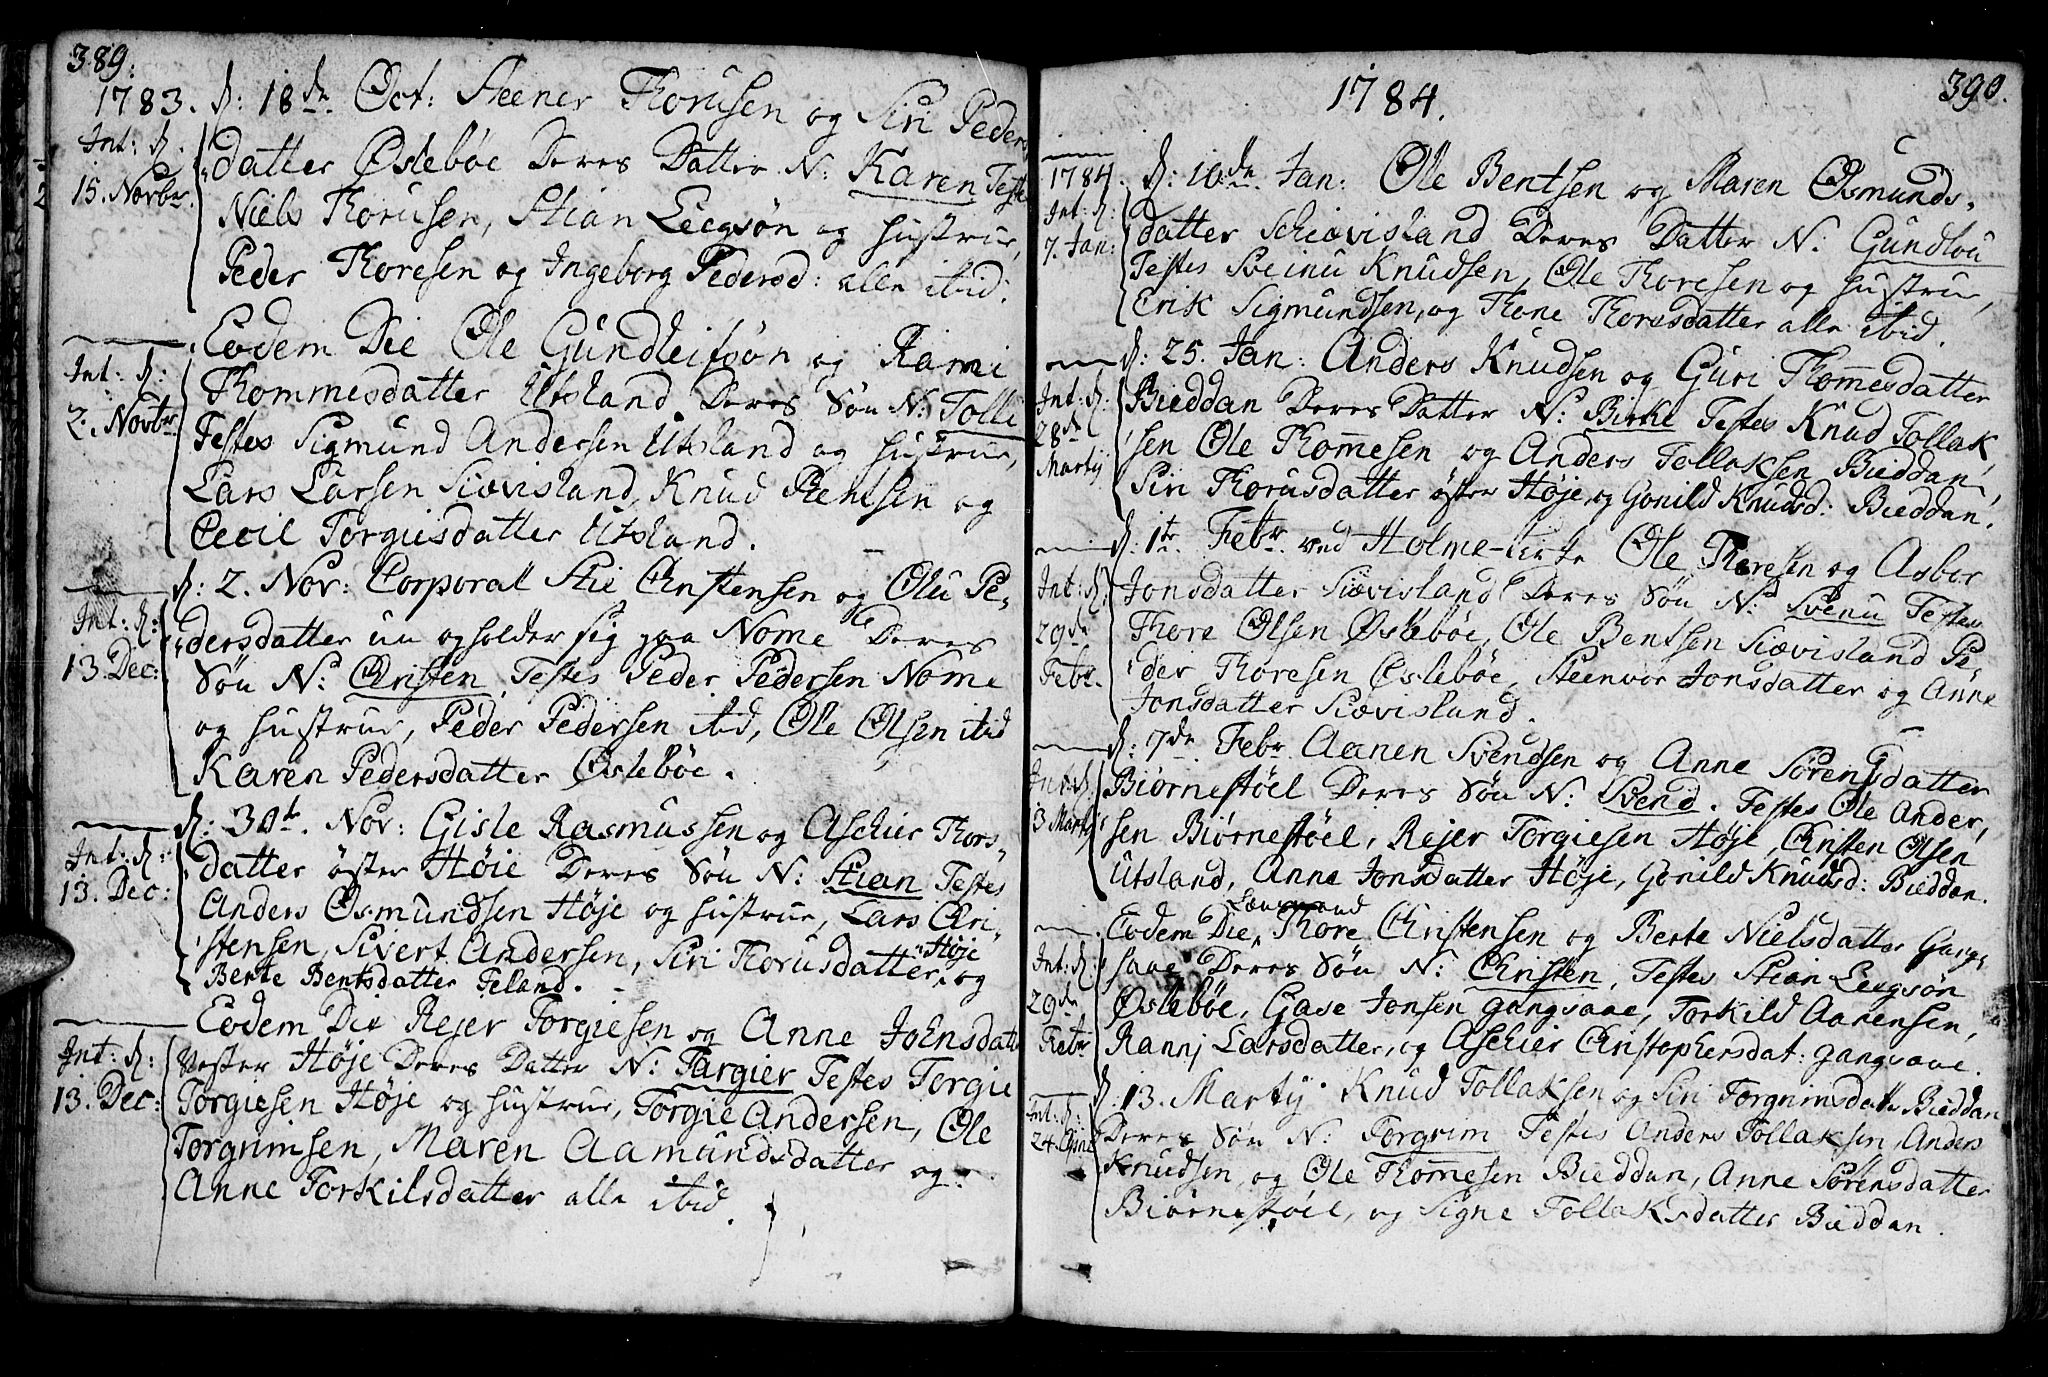 389.
1783. d: 18de Oct: Steener Thorusen og Siri Peders
Int: d. datter Øslebøe Deres Datter N: Karen Test
15. Novbr. Niels Thorusen, Stian Leegsøn og hustrue,
Peder Thoresen og Ingeborg Pedersd: alle ibid.
Eodem Die Ole Gundleifsøn og Rami
Int: d: Thommesdatter Utsland. Deres Søn N: Tolli
2. Novbr. Testes Sigmund Andersen Utsland og hustrue,
Lars Larsen Siævisland, Knud Bentsen og
Cecil Torgiusdatter Utsland.
d: 2. Nov: Corporal Stie Christensen og Olu Pe-
Int: d: dersdatter un opholder sig paa Nome Deres
13. Dec: Søn N: Christen, Testes Peder Pedersen Nome
og hustrue, Peder Pedersen ibid, Ole Olsen ibid
Karen Pedersdatter Øslebøe.
d: 30te. Nov: Gisle Rasmussen og Aschier Thors-
Int: d: datter öster Høie Deres Søn N: Stian Testes
13. Dec: Anders Osmundsen Høje og hustrue, Lars Chri-
stensen, Sivert Andersen, Siri Thorusdatter Høje, og
Berte Bentsdatter Feland.
Eodem Die Rejer Torgiesen og Anne Johnsdatt
Int: d: Vester Høje Deres Datter N: Targier Testes Torgie
13. Dec: Torgiesen Høje og hustrue, Torgie Andersen, Ole
Torgrimsen, Maren Aamundsdatter og
Anne Torkilsdatter alle ibid.
390.
1784.
1784. d: 10de. Jan: Ole Bentsen og Maren Osmunds-
Int: d: datter Schiævisland Deres Datter N: Gundlou
7. Jan: Testes Sveinu Knudsen, Ole Thoresen og hustrue,
Erik Sigmundsen, og Thone Thoresdatter alle ibid.
d: 25. Jan: Anders Knudsen og Guri Thomesdatter
Int: d: Bieddan Deres Datter N: Birke Testes Knud Tollak
28de sen Ole Thomesen og Anders Tollaksen Bieddan,
Martij Siri Thorusdatter öster Høje, og Gonild Knudsd: Bieddan.
d: 1te. Febr. ved Holme-kirke Ole Thoresen og Asbor
Int: d: Jonsdatter Siævisland Deres Søn N: Svenu Testes
29de Thore Olsen Øslebøe, Ole Bentsen Siævisland Pe-
Febr. der Thoresen Øslebøe, Steenvor Jonsdatter og Anne
Jonsdatter Siævisland.
d: 7de. Febr. Aanen Svendsen og Anne Sørensdatter
Int: d. Biørnestøel Deres Søn N: Svend. Testes Ole Ander,
13 Martij sen Biørnestøel, Rejer Torgiesen Høje, Christen Olsen
Utsland, Anne Jonsdatter Høje, Gonild Knudsd: Bieddan.
Eodem Die, Lænsmand Thore Christensen og Berte Nielsdatter Gang-
Int: d. saae Deres Søn N: Christen, Testes Stian Leegsøn
29de Øslebøe, Gase Jonsen gangsaae, Torkild Aanensen,
Febr Rannj Larsdatter, og Aschier Christophersdat: gangsaae.
d: 13. Martij. Knud Tollaksen og Siri Torgrimsdatt Bieddan
Int: d: Deres Søn N: Torgrim Testes Anders Tollaksen, Anders
24. Knudsen, og Ole Thomesen Bieddan, Anne Sørensdatter
Biørnestøel, og Signe Tollaksdatter Bieddan.